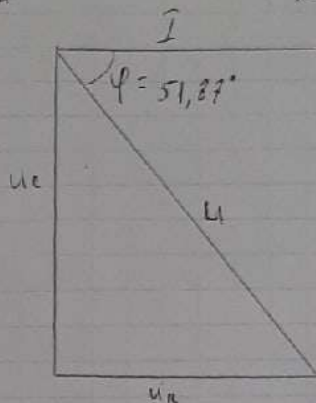 I
φ = 51,87°
uc
u
uR